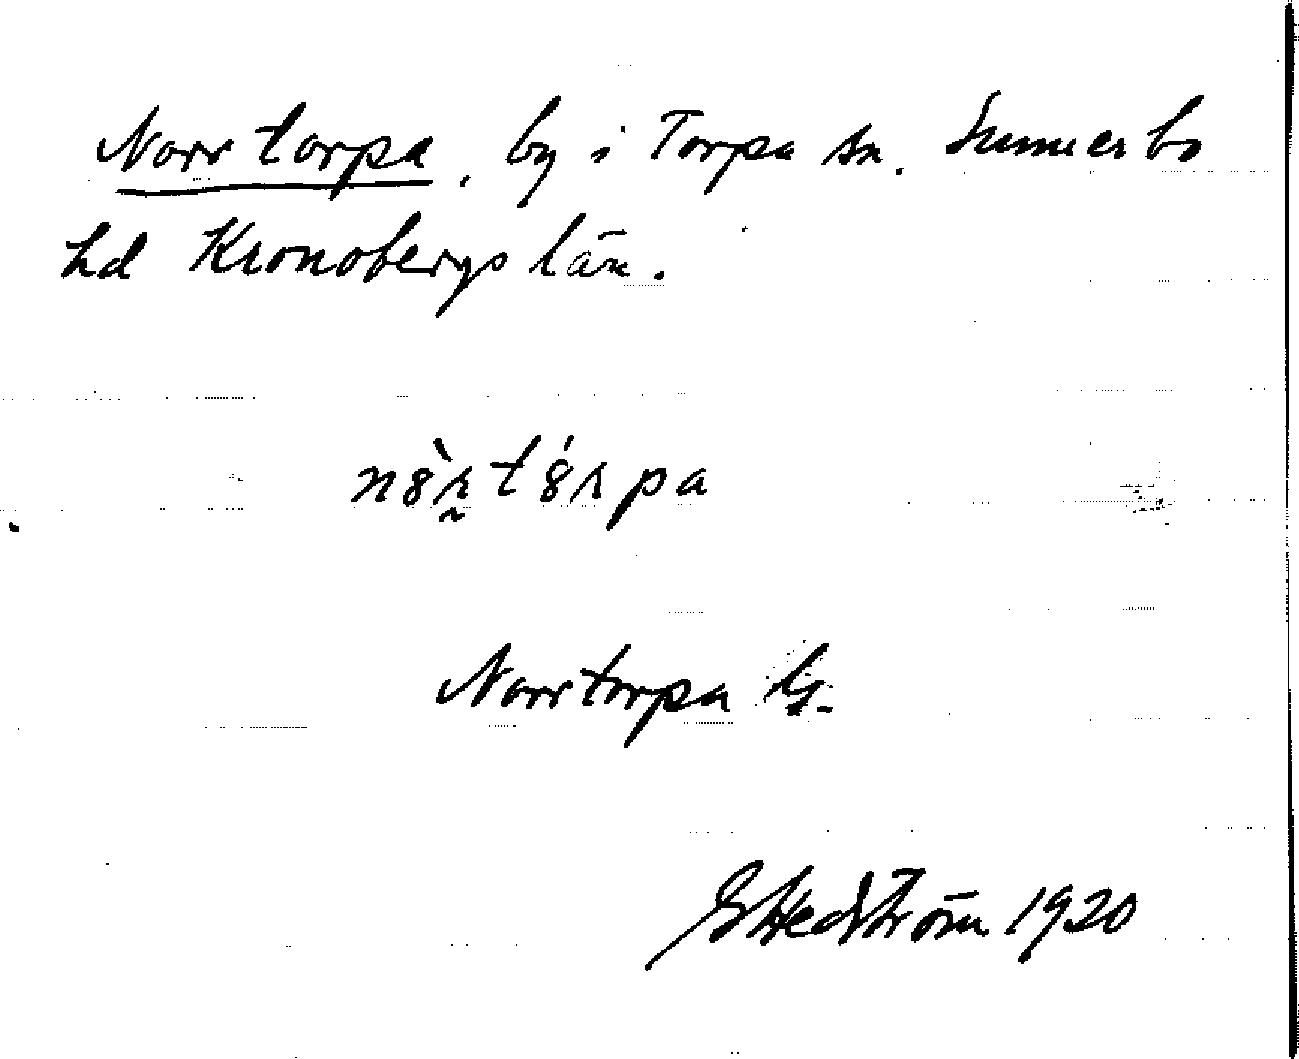 Norrtorpa, by i Torpa sn. Sunnerbo
hd Kronobergs län.
Norrtorpa G.
G Hedström 1920